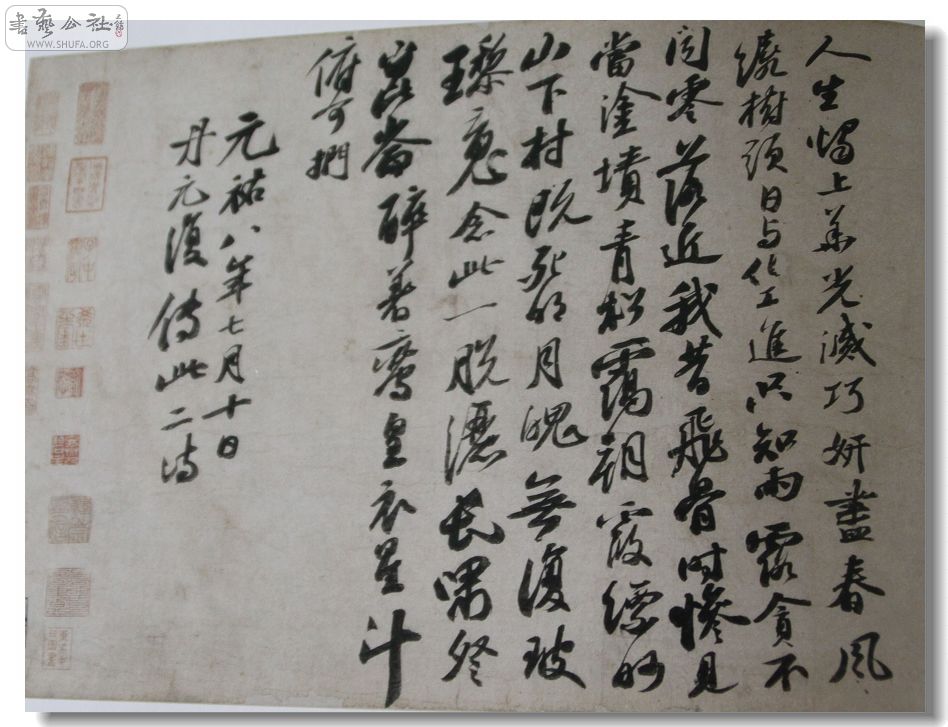 書藝公社
WWW.SHUFA.ORG
人生燭上華光滅巧妍盡春風
繞樹頭日與化工進只知雨露貪不
聞零落近我昔飛骨時慘見
當塗墳青松靄朝霞縹緲
山下村既死明月魄無復玻
瓈魂念此一脫灑長嘯登
崑崙醉著鸞皇衣星斗
俯可捫
元祐八年七月十日
丹元復傳此二詩